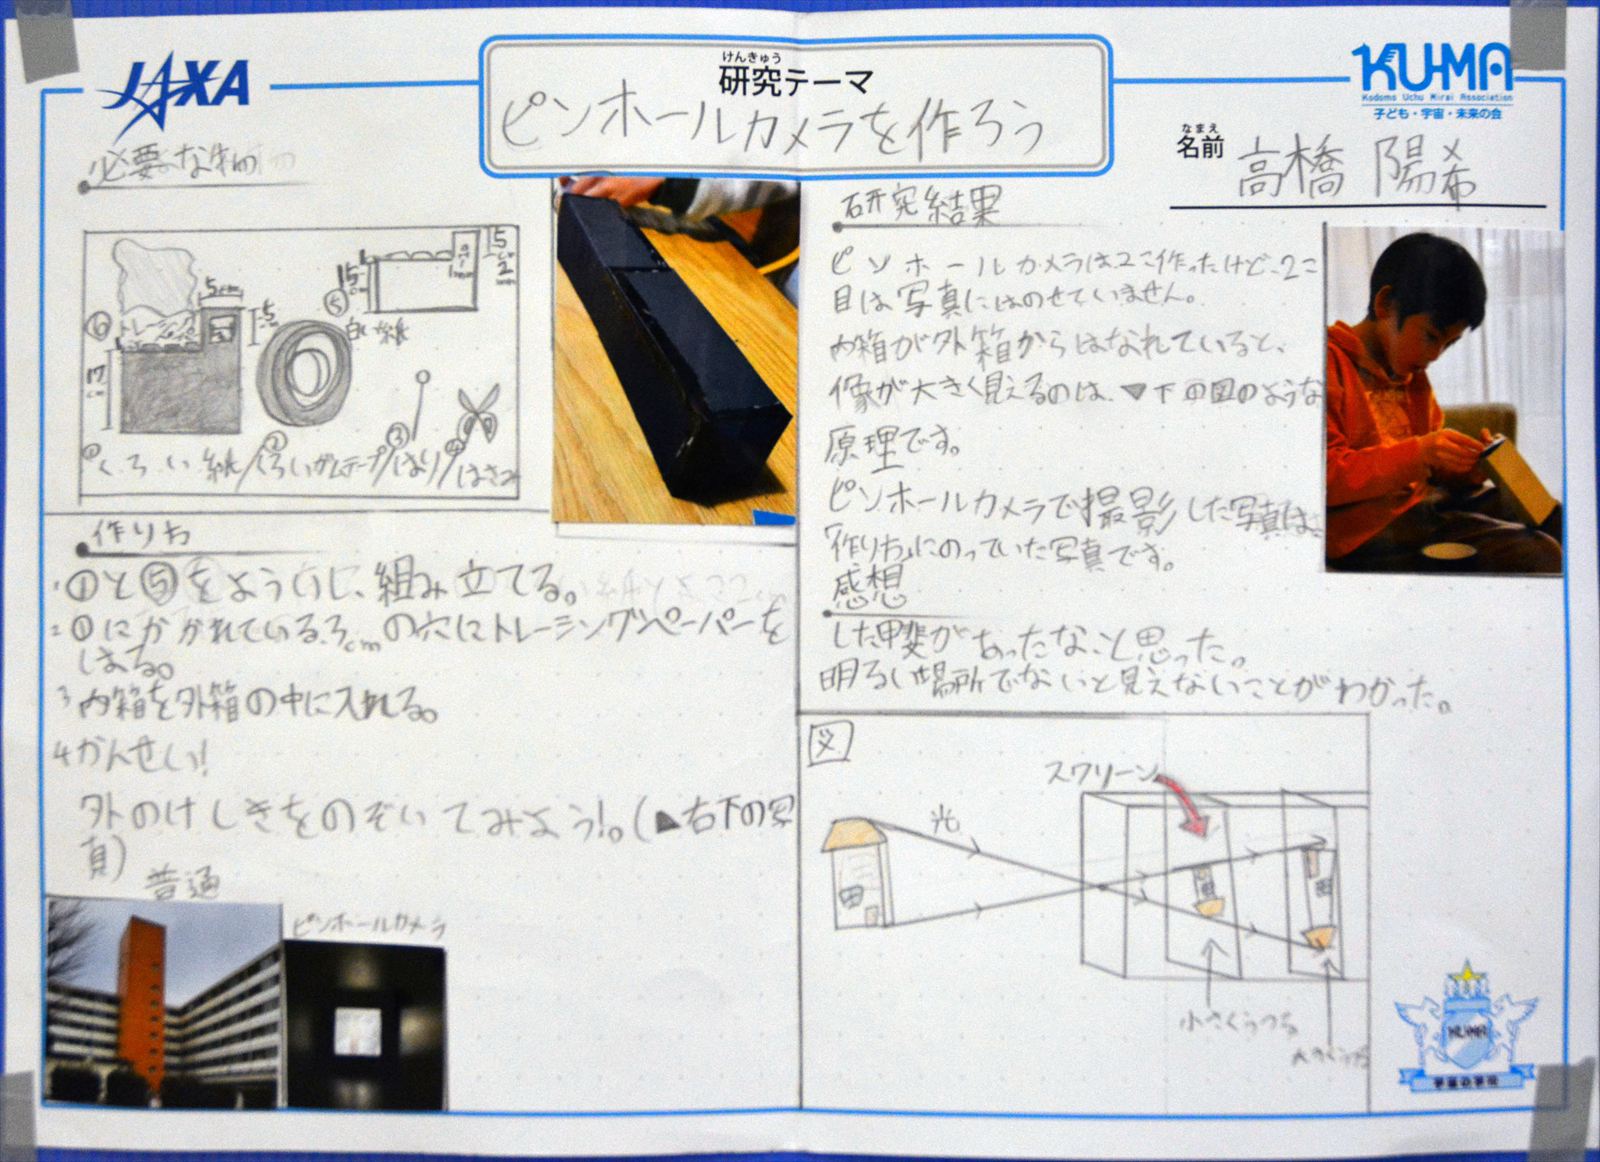 JAXA
けんきゅう
研究テーマ
ピンホールカメラを作ろう
KUMA
Kodomo Uchu Mirai Association
子ども・宇宙・未来の会
なまえ
名前
高橋 陽希
必要な物
5cm
5
⑥トレーシ
17
cm
⑤
白い紙
15
cm
5
cm
2
mm
①くろい紙/②くろいガムテープ/③はり/④はさみ
作り方
1 ①と⑤をよういし、組み立てる。
2 ①にかかれている、5cmの穴にトレーシングペーパーを
はる。
3 内箱を外箱の中に入れる。
4 かんせい!
外のけしきをのぞいてみよう!。(▲右下の写
真)
普通
ピンホールカメラ
研究結果
ピンホールカメラは2こ作ったけど、2こ
目は写真にはのせていません。
内箱が外箱からはなれていると、
像が大きく見えるのは、▼下の図のような
原理です。
ピンホールカメラで撮影した写真は、
「作り方」にのっていた写真です。
感想
した甲斐があったなこと思った。
明るい場所でないと見えないことがわかった。
図
スクリーン
光
小さくうつる
大きくうつる
KUMA